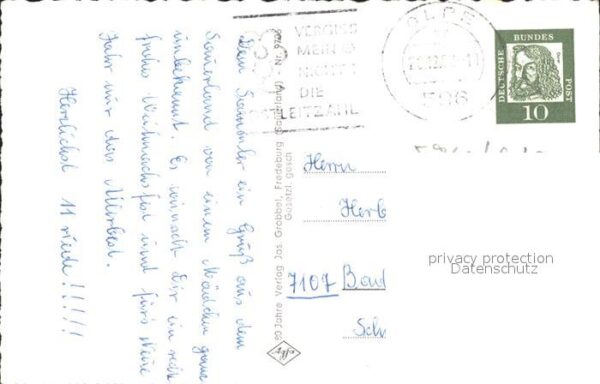 Dem Sammler ein Gruß aus dem
Sauerland von einem Mädchen ganz
unbekannt. Es wünscht Dir ein recht
frohes Weihnachtsfest und fürs Neue
Jahr nur das Allerbest.
Herzlichst
60 Jahre Verlag Jos. Grobbel, Fredeburg (Sauerland) - Nr.
Gesetzl. gesch
Agfa
VERGISS
MEIN
NICHT
DIE
LEITZAHL
OLPE
596
DEUTSCHE BUNDES POST
10
Herrn
Herb
7107 Bad
Sch
privacy protection
Datenschutz